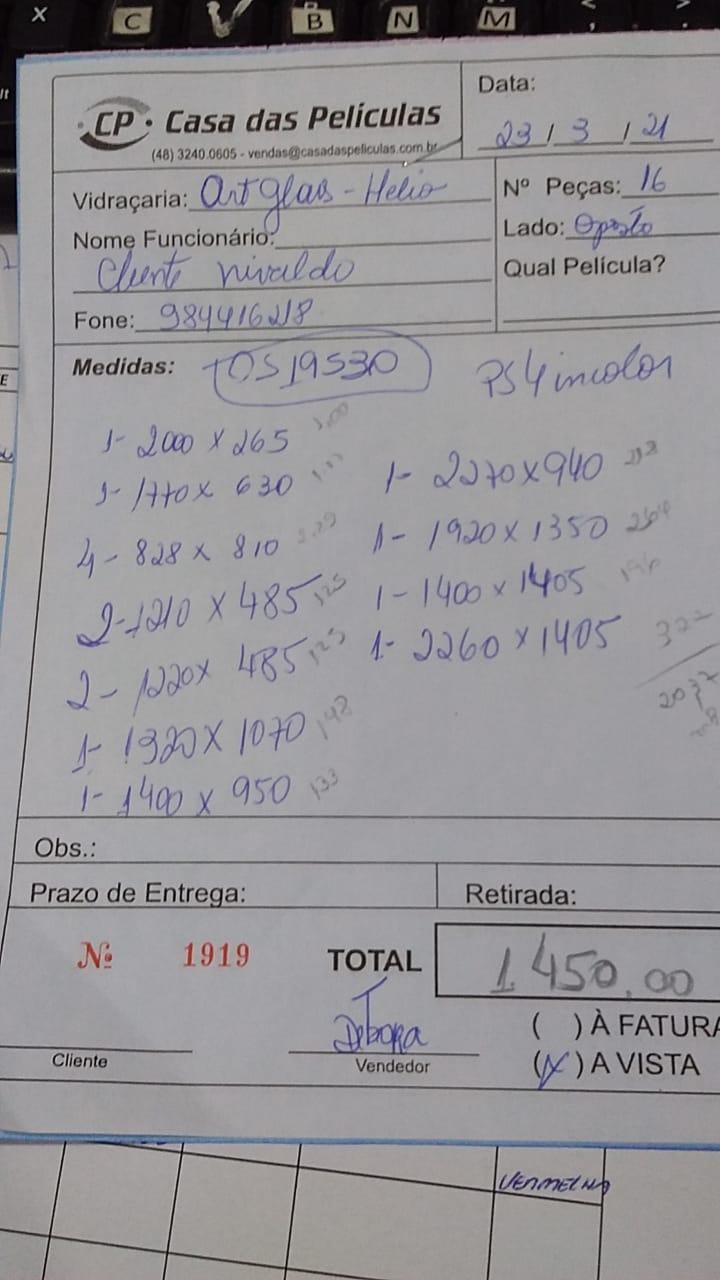 X C V B N M
CP • Casa das Películas
(48) 3240.0605 - vendas@casadaspeliculas.com.br
Data:
23 / 3 / 21
Vidraçaria: Art glass - Helio
Nome Funcionário:
Cliente nivaldo
Fone: 984416218
Nº Peças: 16
Lado: Oposto
Qual Película?
Medidas: OS 19530 PS4 incolor
1- 2000 x 265
1- 1770 x 630
4- 828 x 810
2- 1210 x 485 125
2- 1220 x 485 125
1- 1320 x 1070 142
1- 1400 x 950 133
1- 2270 x 940 213
1- 1920 x 1350 264
1- 1400 x 1405 196
1- 2260 x 1405 322
2037
Obs.:
Prazo de Entrega:
Retirada:
Nº 1919
TOTAL 1.450,00
Cliente
Debora
Vendedor
( ) À FATURA
(X) A VISTA
VERMELHO